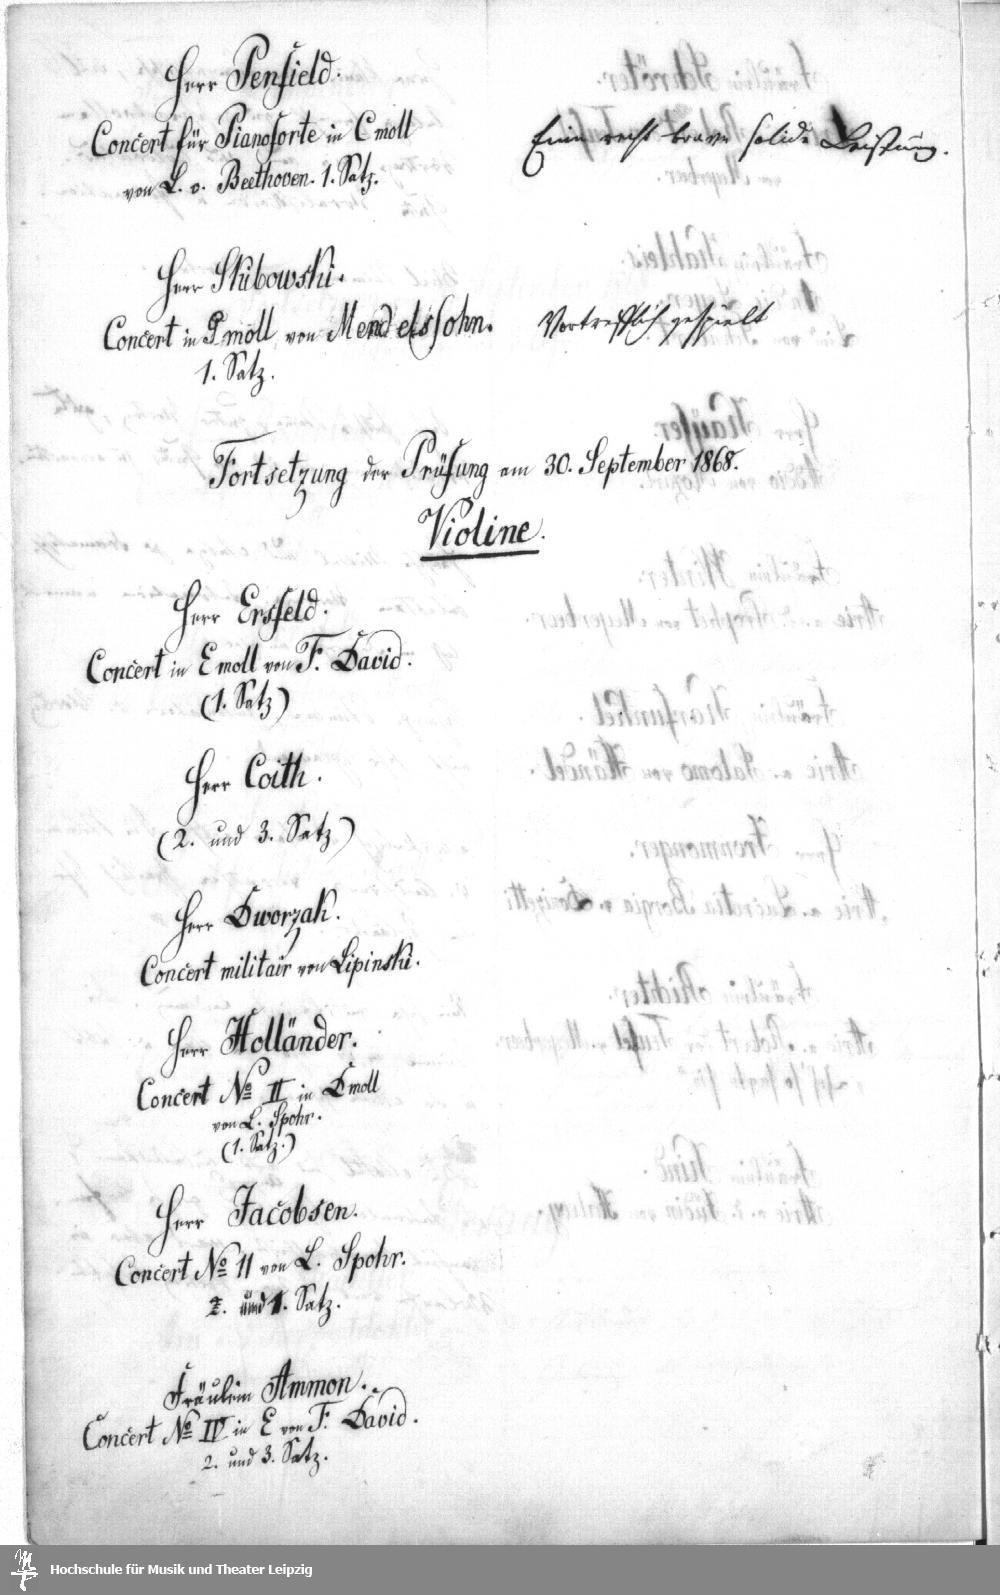 Herr Penfield.
Concert für Pianoforte in C moll
von L. v. Beethoven. 1. Satz.
Eine recht brave solide Leistung.
Herr Skibowski.
Concert in G moll von Mendelssohn.
1. Satz.
Vortrefflich gespielt
Fortsetzung der Prüfung am 30. September 1868.
Violine.
Herr Ersfeld.
Concert in E moll von F. David.
(1. Satz)
Herr Coith.
(2. und 3. Satz)
Herr Dworzak.
Concert militair von Lipinski.
Herr Holländer.
Concert No II in D moll
von L. Spohr.
(1. Satz.)
Herr Jacobsen.
Concert No 11 von L. Spohr.
und 1. Satz.
Fräulein Ammon.
Concert No IV in E von F. David.
2. und 3. Satz.
Hochschule für Musik und Theater Leipzig